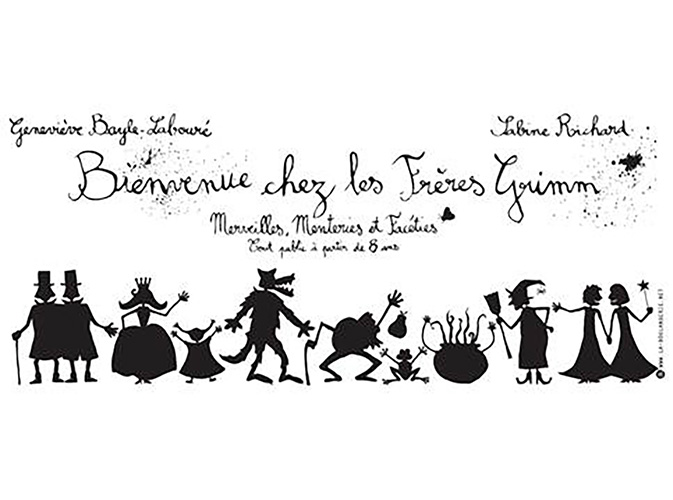 Geneviève Bayle-Labouré
Sabine Richard
Bienvenue chez les Frères Grimm
Merveilles, Menteries et Facéties
Tout public à partir de 8 ans
www.la-boulangerie.net